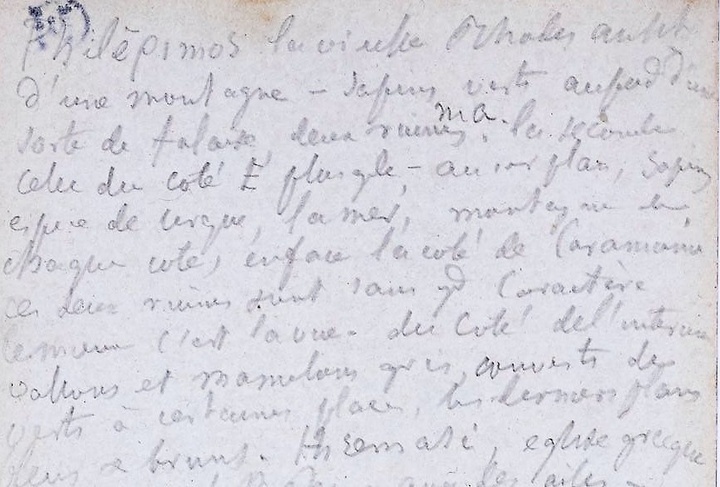 Philépimos la vieille Rhodes au ht
d'une montagne – sapins verts au pied d'une
sorte de falaise, deux ruines, la seconde
celle du coté E plus gde – au 1er plan, sapins
espèce de cirque, la mer, montagne de
chaque coté, en face la coté de Caramanie
ces deux ruines sont sans gd caractère
le mieux c'est la vue – du coté de l'intérieur
vallons et mamelons gris, couverts de
verts à certaines places, les derniers plans
bruns. église grecque
les ailes –